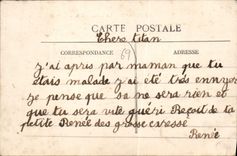 CARTE POSTALE
Chers titan
CORRESPONDANCE
ADRESSE
69
j'ai apris par maman que tu
étais malade j'ai été très ennuyer
je pense que sa ne sera rien et
que tu sera vite guéri Reçoit de ta
petite Renée des grosse caresse
Renée